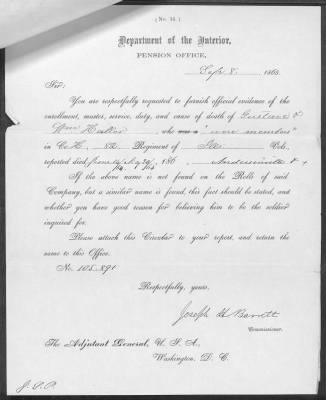 (No. 16.)
Department of the Interior,
PENSION OFFICE,
Sept 8. 1865
Sir:
You are respectfully requested to furnish official evidence of the
enrollment, muster, service, duty, and cause of death of Gustave &
Wm , who "were members"
in Co H. 82 Regiment of Vols.
reported died June &
If the above name is not found on the Rolls of said
Company, but a similar name is found, this fact should be stated, and
whether you have good reason for believing him to be the soldier
inquired for.
Please attach this Circular to your report, and return the
same to this Office.
No. 105.891
Respectfully, yours,
Joseph H Barrett
Commissioner.
The Adjutant General, U. S. A.,
Washington, D. C.